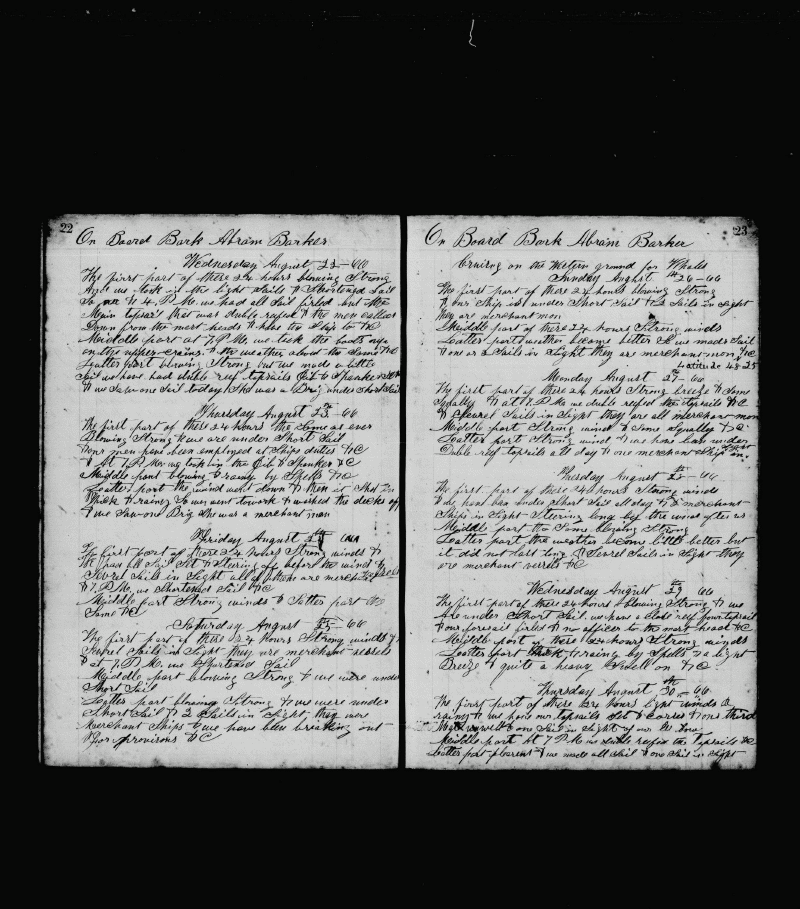 22
On Board Bark Abram Barker
Wednesday August 22 - 66
The first part of these 24 hours blowing Strong
we took in the light Sails & Shortened Sail
So at 4 P.M. we had all Sail firled but the
Main topsail that was duble reefed & the men called
Down from the mast heads
Middle part at 7 P.M. we took the boats up
on the upper crains & the weather about the Same &C
Latter part blowing Strong but we made a little
Sail we have had duble reef topsails Gib & Spanker
& we Saw one Sail today She was a Brig under Short Sail
Thursday August 23 - 66
The first part of these 24 hours the Same as ever
Blowing Strong & we are under Short Sail
& our men have been employed at Ships duties &C
& at 7 P.M. we took in the Gib & Spanker &C
Middle part blowing & rainy by Spells &C
Latter part the wind went down & then it Shet in
thick & rainy So we went to work & washed the decks off
& we Saw one Brig She was a merchant man
Friday August 24 - 66
The first part of these 24 hours Strong winds &
We have all Sail Set & Steering off before the wind &
Severl Sails in Sight all of them are merchant
& 7 P.M. we Shortened Sail &C
Middle part Strong winds & Latter part the
Same &C
Saturday August 25 - 66
The first part of these 24 hours Strong winds &
Severl Sails in Sight they are merchant vessels
& at 7 P.M. we Shortened Sail
Middle part blowing Strong & we were under
Short Sail
Latter part blowing Strong & we were under
Short Sail & 2 Sails in Sight they were
Merchant Ships & we have been breaking out
for provisons &C
23
On Board Bark Abram Barker
Cruring on the Western ground for Whals
Sunday August 26 - 66
The first part of these 24 hours blowing Strong
& our Ship is under Short Sail & 2 Sails in Sight
they are merchant men
Middle part of these 24 hours Strong winds
Latter part weather became better So we made Sail
& one or 2 Sails in Sight they are merchant men &C
Latitude 48-25
Monday August 27 - 66
The first part of these 24 hours Strong breeze & Some
Squally & at 7 P.M. we duble reefed the topsails &C
& Severel Sails in Sight they are all merchant men
Middle part Strong wind & Some Squally &C
Latter part Strong wind & we have been under
Duble reef topsails all day & one merchant Ship in Sight
Tuesday August 28 - 66
The first part of these 24 hours Strong winds
& we have ben under Short Sail all day & 2 merchant
Ships in Sight Steering long by the wind after us
Middle part the Same blowing Strong
Latter part the weather become little better but
it did not last long & Severl Sails in Sight they
are merchant vessels &C
Wednesday August 29 66
The first part of these 24 hours blowing Strong & we
are under Short Sail we have a close reef four topsail
& our foresail firled & no officer to the mast head &C
Middle part of these 24 hours Strong winds
Latter part thick & rainy by Spells & a light
Breeze & quite a heavy Swell on &C
Thursday August 30 - 66
The first part of these 24 hours light winds &
rainy & we have our topsails Set & corses & our third
& one Sail in Sight of us
Middle part At 7 P.M. we duble reefed the topsails &C
Latter part plesent & we made all Sail & one Sail in Sight